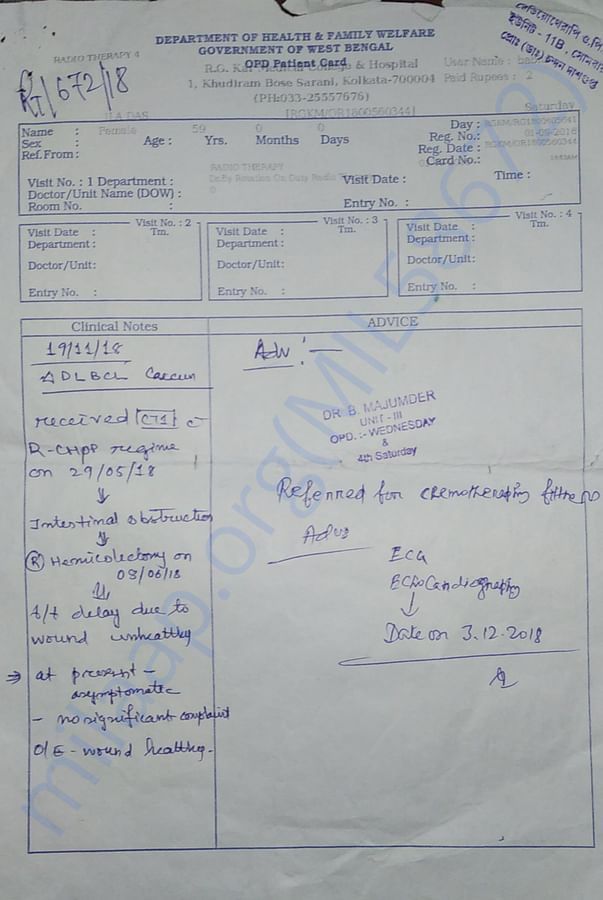 DEPARTMENT OF HEALTH & FAMILY WELFARE
GOVERNMENT OF WEST BENGAL
RADIO THERAPY 4
OPD Patient Card
ইউনিট - 11B, সোমবার
RT/672/18
R.G. Kar Medical College & Hospital
User Name :
1, Khudiram Bose Sarani, Kolkata-700004
Paid Rupees : 2
(PH:033-25557676)
ILA DAS
[RGKM/GR1800560344]
Saturday
Name :
Day :
Sex : Female
Age : 59 Yrs. 0 Months 0 Days
Reg. No.:
Ref.From :
Reg. Date :
Card No.:
Visit No. : 1 Department : RADIO THERAPY
Visit Date :
Time :
Doctor/Unit Name (DOW) :
Room No. :
Entry No. :
Visit No. : 2
Visit Date : Tm.
Department :
Doctor/Unit:
Entry No. :
Visit No. : 3
Visit Date : Tm.
Department :
Doctor/Unit:
Entry No. :
Visit No. : 4
Visit Date : Tm.
Department :
Doctor/Unit:
Entry No. :
Clinical Notes
19/11/18
DLBCL
received CT1 c
R-CHOP regime
on 29/05/18
Intestinal obstruction
(R) Hemicolectomy on
03/06/18
t/t delay due to
wound unhealthy
at present -
asymptomatic
- no significant complaint
O/E - wound healthy -
ADVICE
Adv :-
DR. B. MAJUMDER
UNIT - III
OPD. :- WEDNESDAY
&
4th Saturday
Referred for chemotherapy fitness
Adv
ECG
Echocardiography
Date on 3.12.2018